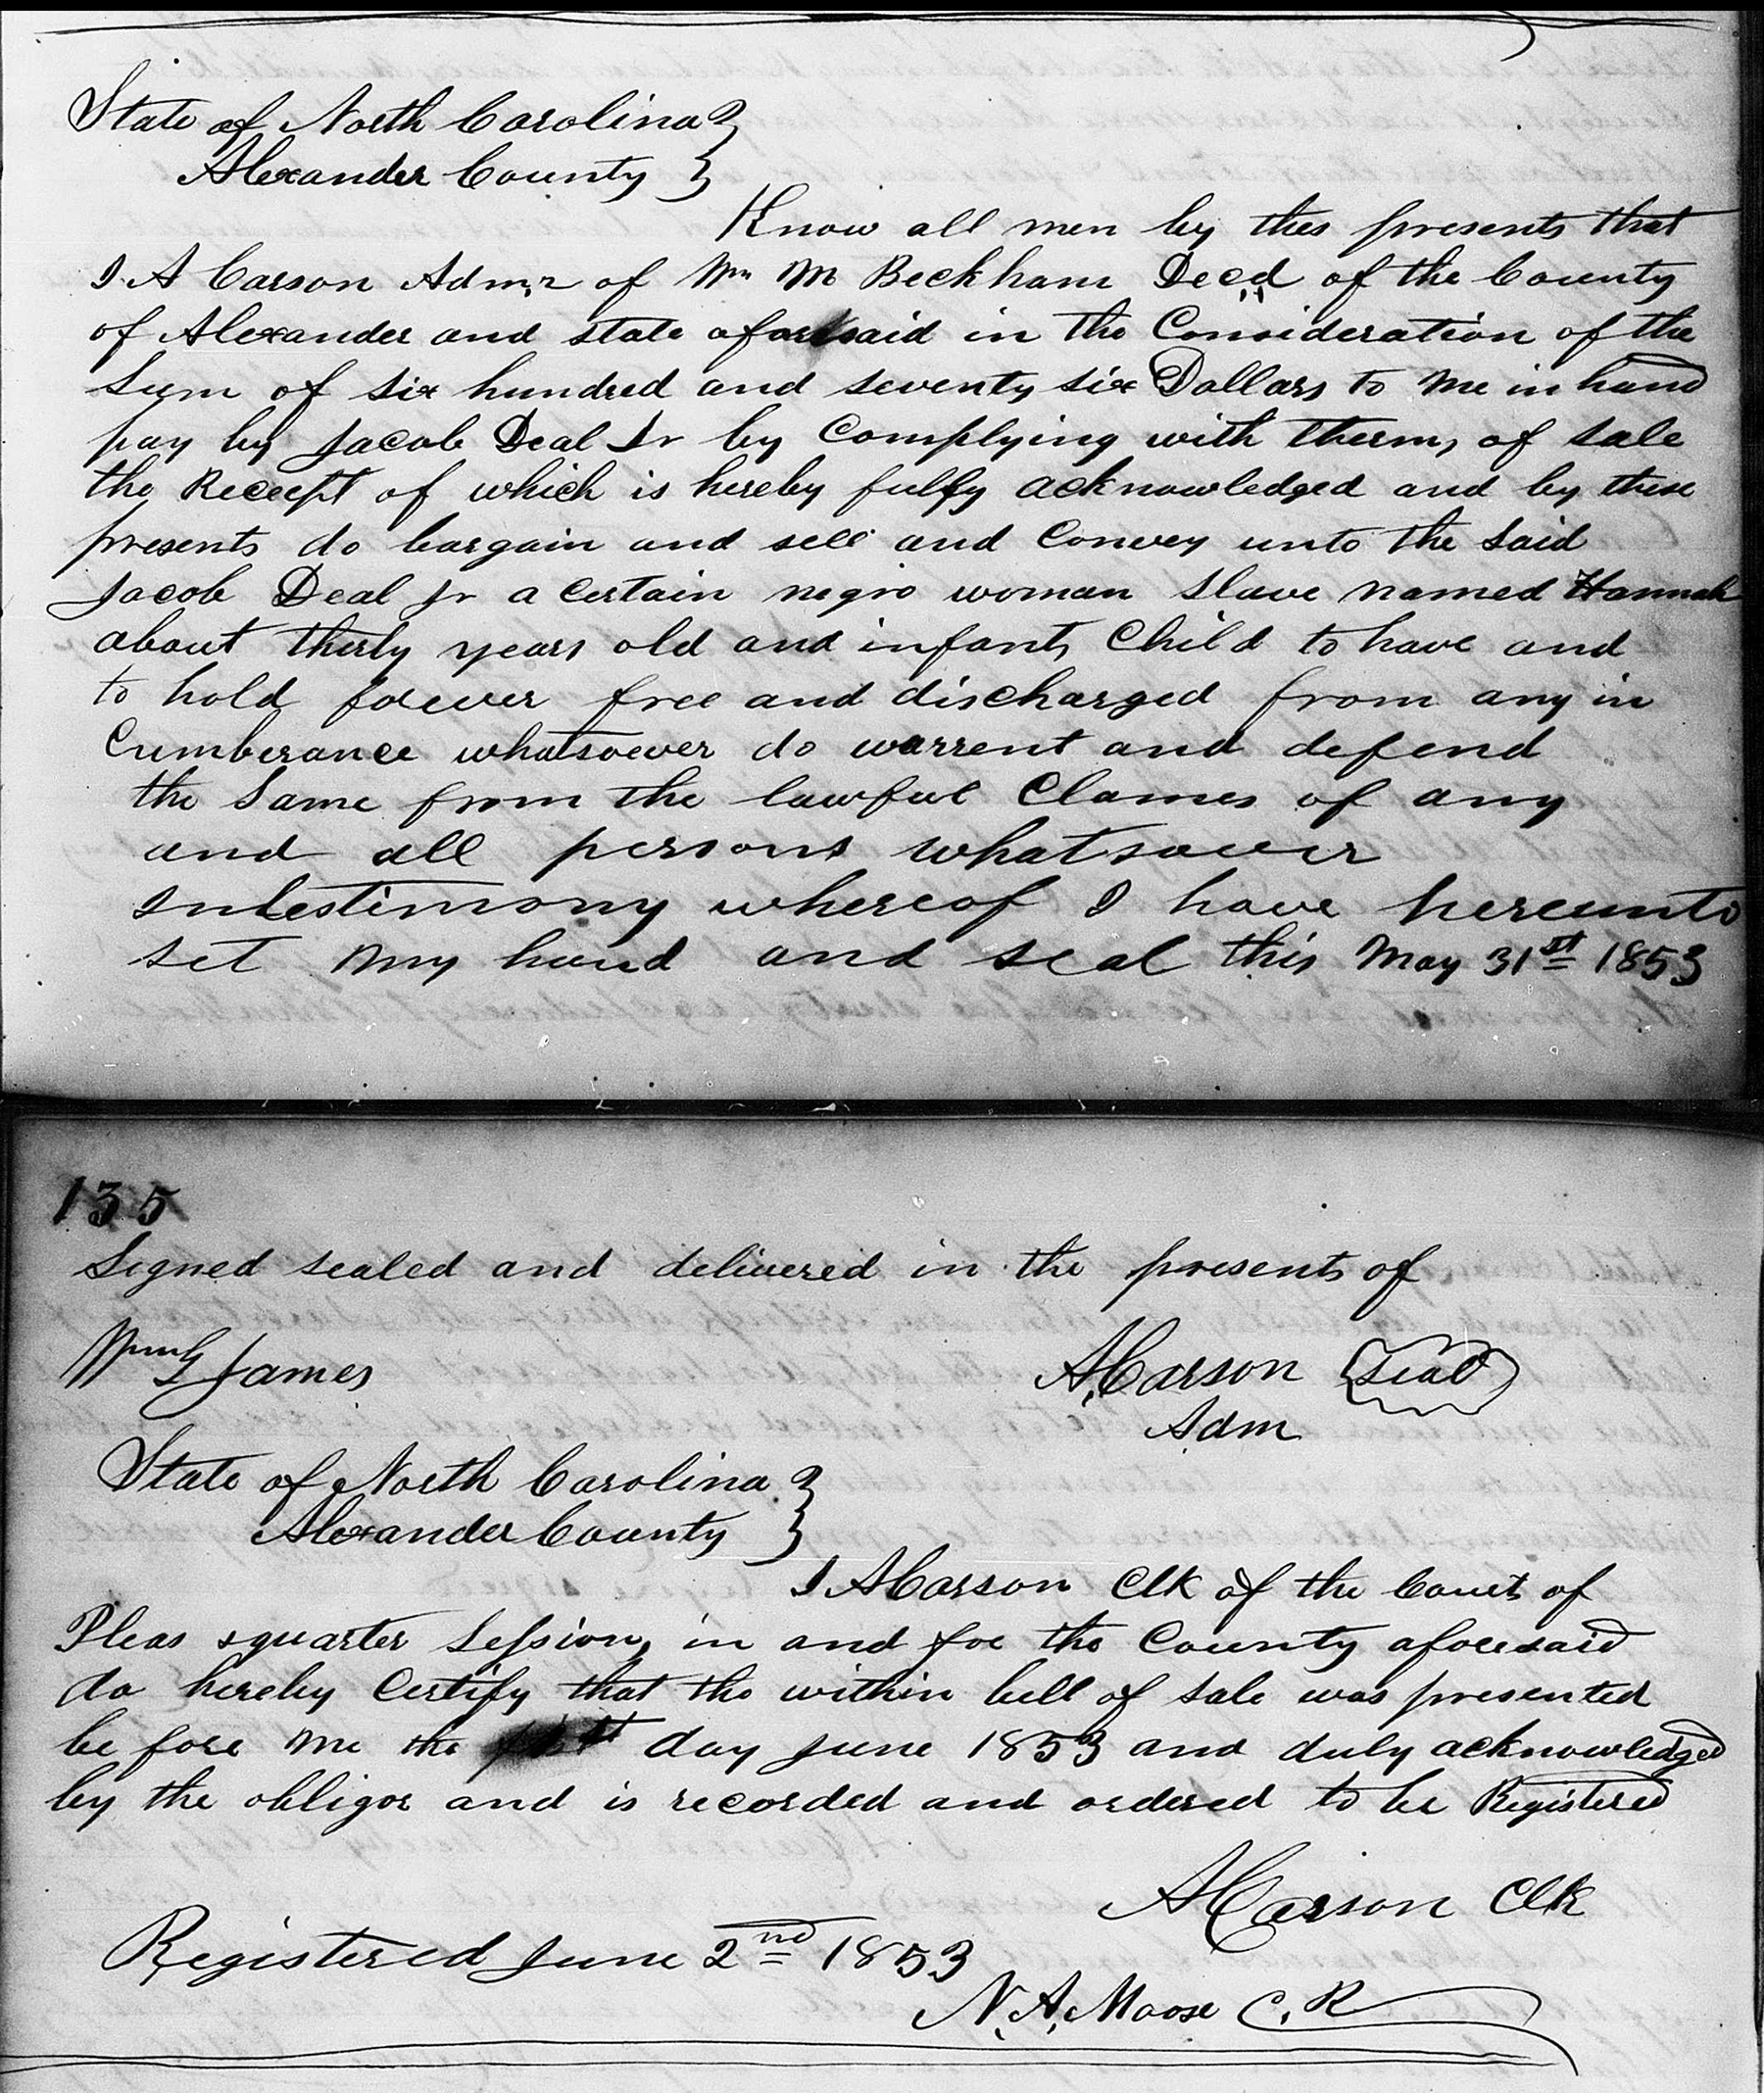 State of North Carolina }
Alexander County }
Know all men by thes presents that
I A Carson Admr of Wm M Beckham Decd of the County
of Alexander and state aforesaid in the Consideration of the
Sum of six hundred and seventy six Dollars to me in hand
pay by Jacob Deal Jr by Complying with therms of sale
the Receept of which is hereby fully acknowledged and by these
presents do bargain and sell and Convey unto the Said
Jacob Deal Jr a Certain negro woman Slave named Hannah
about thirty years old and infant Child to have and
to hold forever free and discharged from any in
Cumberance whatsoever do warrent and defend
the Same from the lawful Clames of any
and all persons whatsoever
Intestimony whereof I have hereunto
set my hand and seal this May 31st 1853
135
Signed sealed and delivered in the presents of
Wm G James A, Carson Seal
Adm
State of North Carolina }
Alexander County }
I A Carson Clk of the Court of
Pleas & quarter Session, in and for the County aforesaid
do hereby Certify that the within bill of sale was presented
be fore me the first day June 1853 and duly acknowledged
by the obligor and is recorded and ordered to be Registered
A Carson Clk
Registered June 2nd 1853
N. A. Moose C. R